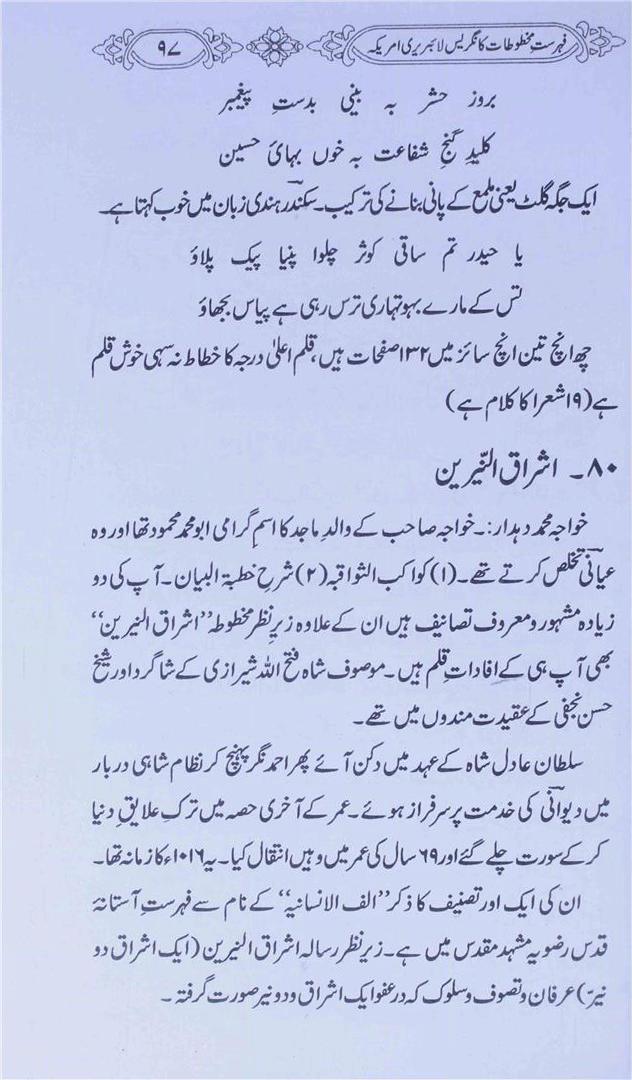 فہرستِ مخطوطات کانگریس لائبریری امریکہ
۹۷
بروز حشر بہ بینی بدستِ پیغمبر
کلیدِ گنجِ شفاعت بہ خوں بہائ حسین
ایک جگہ گلٹ یعنی ملمع کے پانی بنانے کی ترکیب۔ سکندر ہندی زبان میں خوب کہتا ہے۔
یا حیدر تم ساقی کوثر چلوا پنیا پیک پلاؤ
تس کے مارے بہو تہاری ترس رہی ہے پیاس بجھاؤ
چھ انچ تین انچ سائز میں ۱۳۲ صفحات ہیں، قلم اعلیٰ درجہ کا خطاط نہ سہی خوش قلم
ہے (۱۹ شعرا کا کلام ہے)
۸۰۔ اشراق النّیرین
خواجہ محمد دہدار:۔ خواجہ صاحب کے والدِ ماجد کا اسمِ گرامی ابو محمد محمود تھا اور وہ
عیانی تخلص کرتے تھے۔ (۱) کواکب الثواقبہ (۲) شرح خطبۃ البیان۔ آپ کی دو
زیادہ مشہور و معروف تصانیف ہیں ان کے علاوہ زیرِ نظر مخطوطہ ’’اشراق النیرین‘‘
بھی آپ ہی کے افاداتِ قلم ہیں۔ موصوف شاہ فتح اللہ شیرازی کے شاگرد اور شیخ
حسن نجفی کے عقیدت مندوں میں تھے۔
سلطان عادل شاہ کے عہد میں دکن آئے پھر احمد نگر پہنچ کر نظام شاہی دربار
میں دیوانی کی خدمت پر سرفراز ہوئے۔ عمر کے آخری حصہ میں ترکِ علایقِ دنیا
کر کے سورت چلے گئے اور ۶۹ سال کی عمر میں وہیں انتقال کیا۔ یہ ۱۰۱۶ء کا زمانہ تھا۔
ان کی ایک اور تصنیف کا ذکر ’’الف الانسانیہ‘‘ کے نام سے فہرستِ آستانۂ
قدس رضویہ مشہد مقدس میں ہے۔ زیرِ نظر رسالہ اشراق النیرین (ایک اشراق دو
نیرّ) عرفان و تصوف و سلوک کہ در عفو ایک اشراق و دو نیر صورت گرفتہ۔